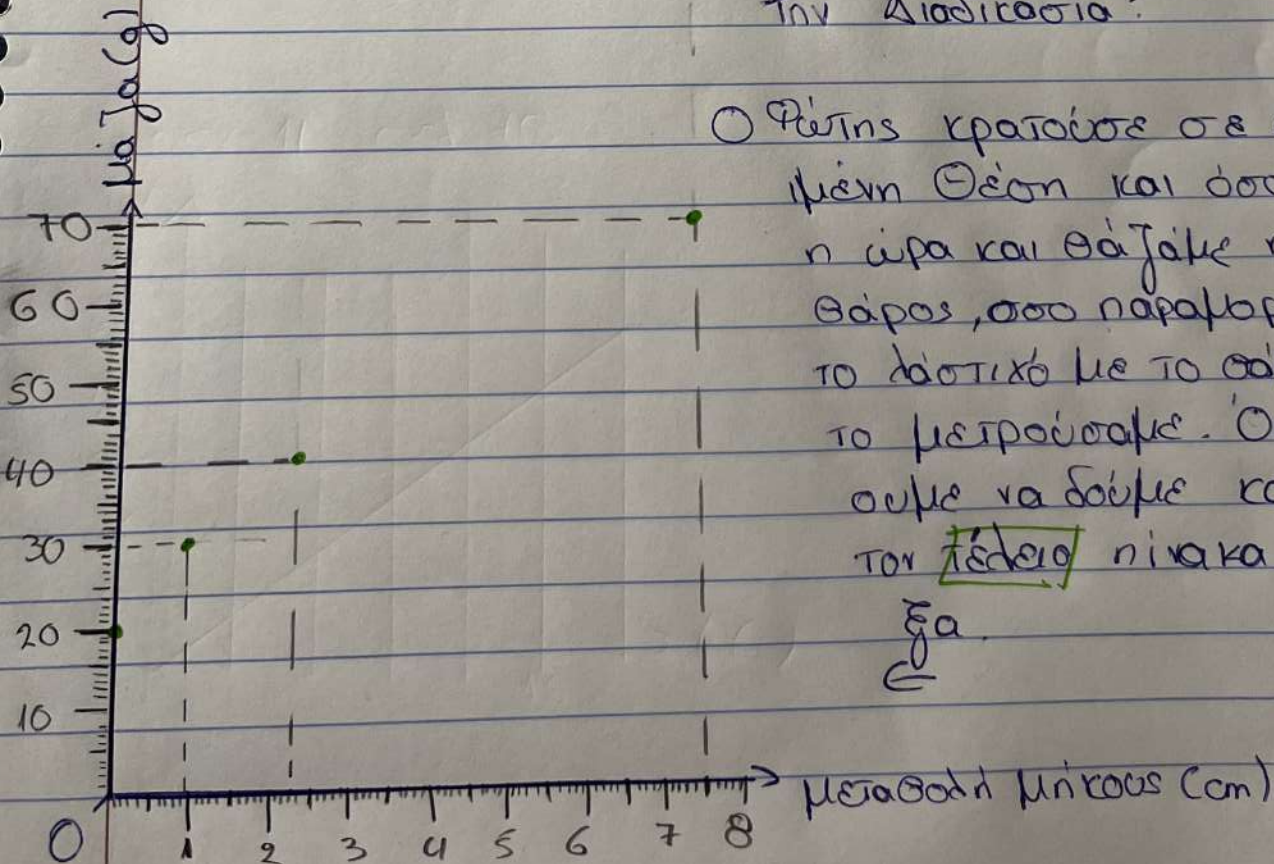 την Διαδικασία:
μάζα (g)
Ο Φώτης κρατούσε σε
ιμένη θέση και όσο
η ώρα και βάζαμε
βάρος, όσο παραμορ
το λάστιχό με το βά
το μετρούσαμε. Ό
ουμε να δούμε κα
τον τέλειο πίνακα
ξα.
70
60
50
40
30
20
10
0
1 2 3 4 5 6 7 8
μεταβολή μήκους (cm)